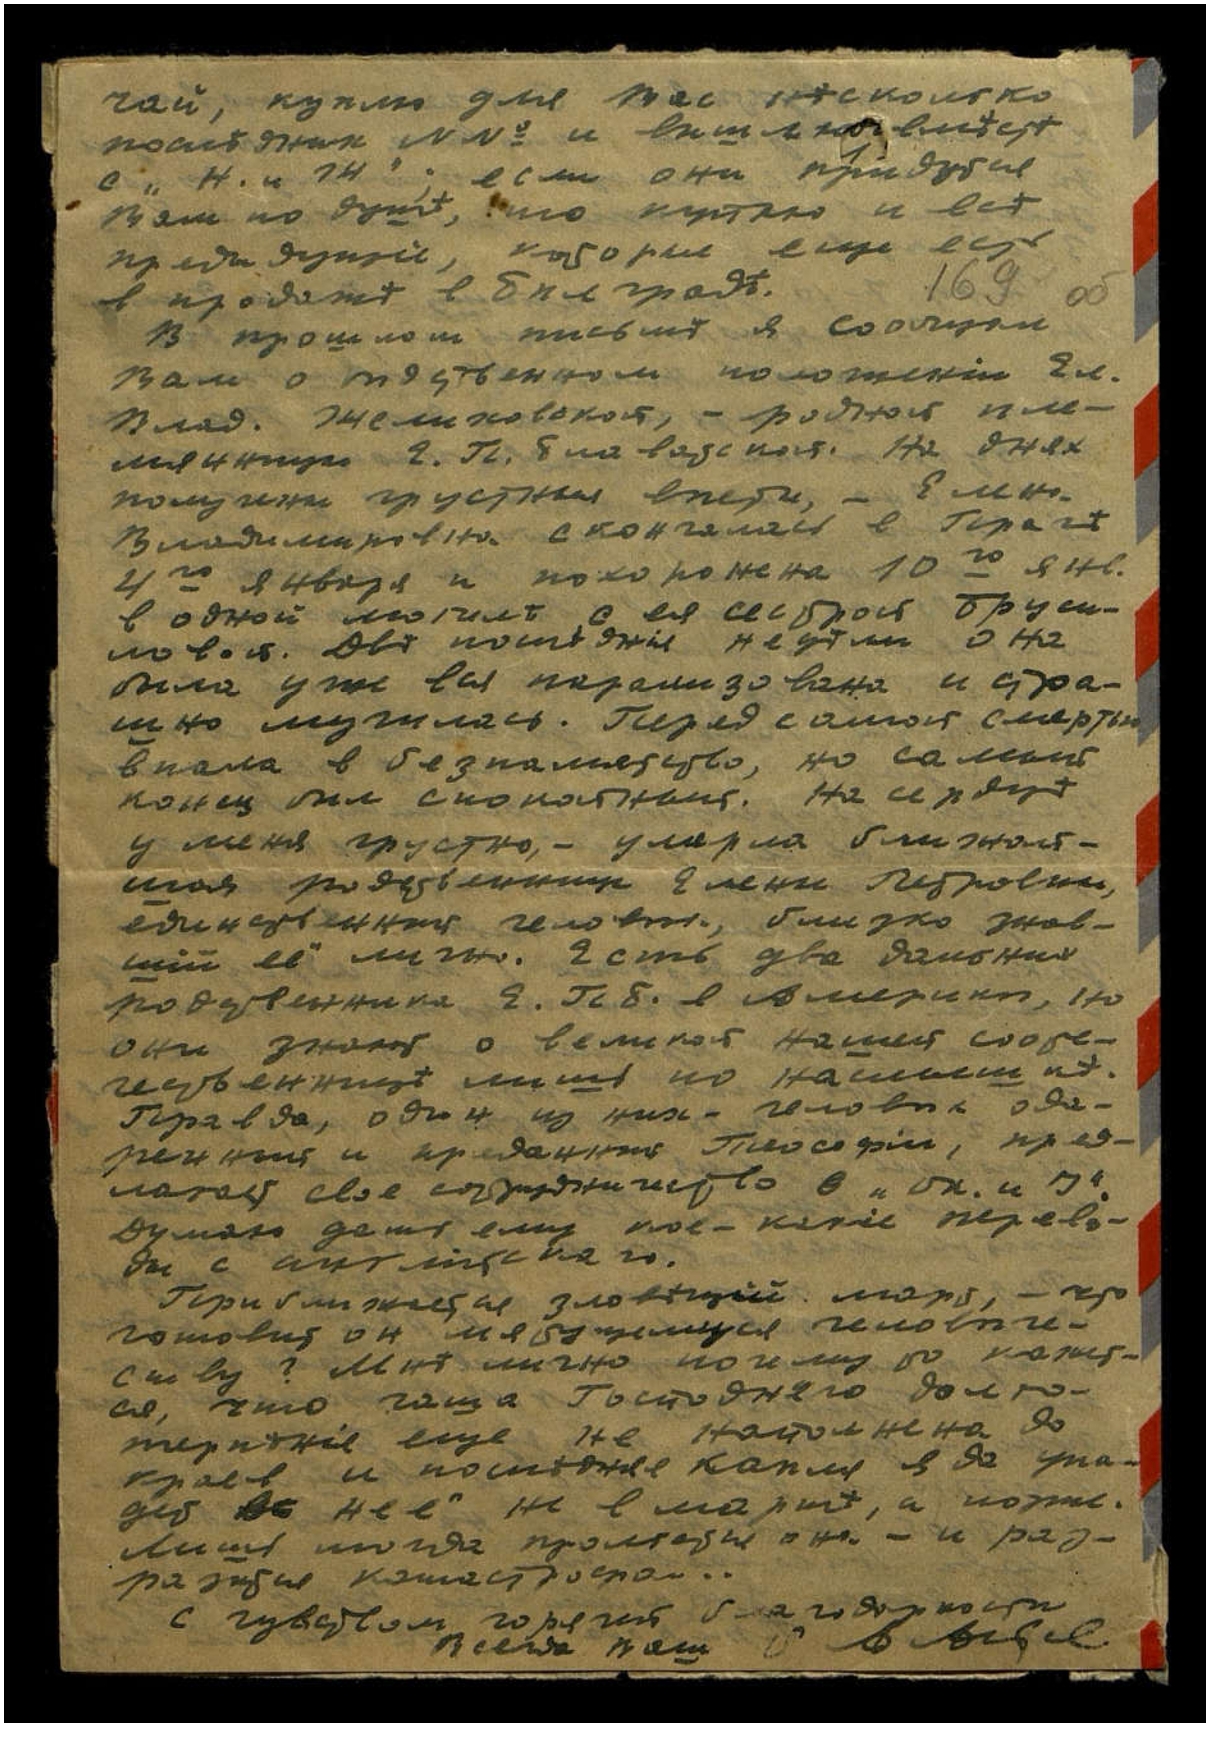 чай, куплю для Вас нѣсколько
послѣдних NNº и вышлю вмѣстѣ
с „Н. и Ж"; если они придутся
Вам по душѣ, то куплю и всѣ
предыдущіе, которые еще есть
в продажѣ в Бѣлградѣ.
169 об
В прошлом письмѣ я сообщал
Вам о бѣдственном положеніи Ел.
Влад. Желиховской, – родной пле-
мянницы Е. П. Блаватской. На днях
получены грустныя вѣсти, – Елена
Владимировна скончалась в Прагѣ
4го января и похоронена 10го янв.
в одной могилѣ с ея сестрой Бруси-
ловой. Двѣ послѣднія недѣли она
была уже вся парализована и стра-
шно мучилась. Перед самой смертью
впала в безпамятство, но самый
конец был спокойный. На сердцѣ
у меня грустно, – умерла ближай-
шая родственница Елены Петровны,
единственный человѣк, близко знав-
шій её лично. Есть два дальних
родственника Е. П. Б. в Америкѣ, но
они знают о великой нашей сооте-
чественницѣ лишь по наслышкѣ.
Правда, один из них – человѣк ода-
ренный и преданный Теософіи, пред-
лагает свое сотрудничество в „Ок. и І".
Думаю дать ему кое-какіе перево-
ды с англійскаго.
Приближается зловѣщій март, – что
готовит он мятущемуся человѣче-
ству? Мнѣ лично почему то кажет-
ся, что чаша Господняго долго-
терпѣнія еще не наполнена до
краев и послѣдняя капля яда упа-
дет в неё не в мартѣ, а позже.
Лишь тогда прольется она – и раз-
разится катастрофа..
С чувством горячей благодарности
Всегда Ваш